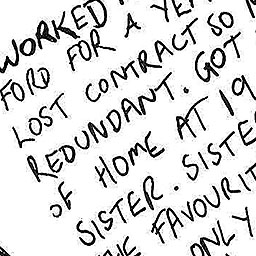 WORKED
FORD FOR A YEA
LOST CONTRACT SO
REDUNDANT. GOT
OF HOME AT 19
SISTER. SISTE
THE FAVOURIT
ONLY